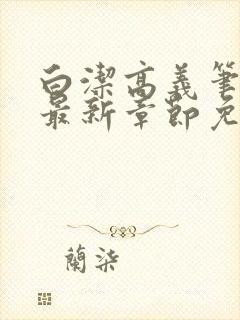 白潔高義筆
最新章節免
蘭柒